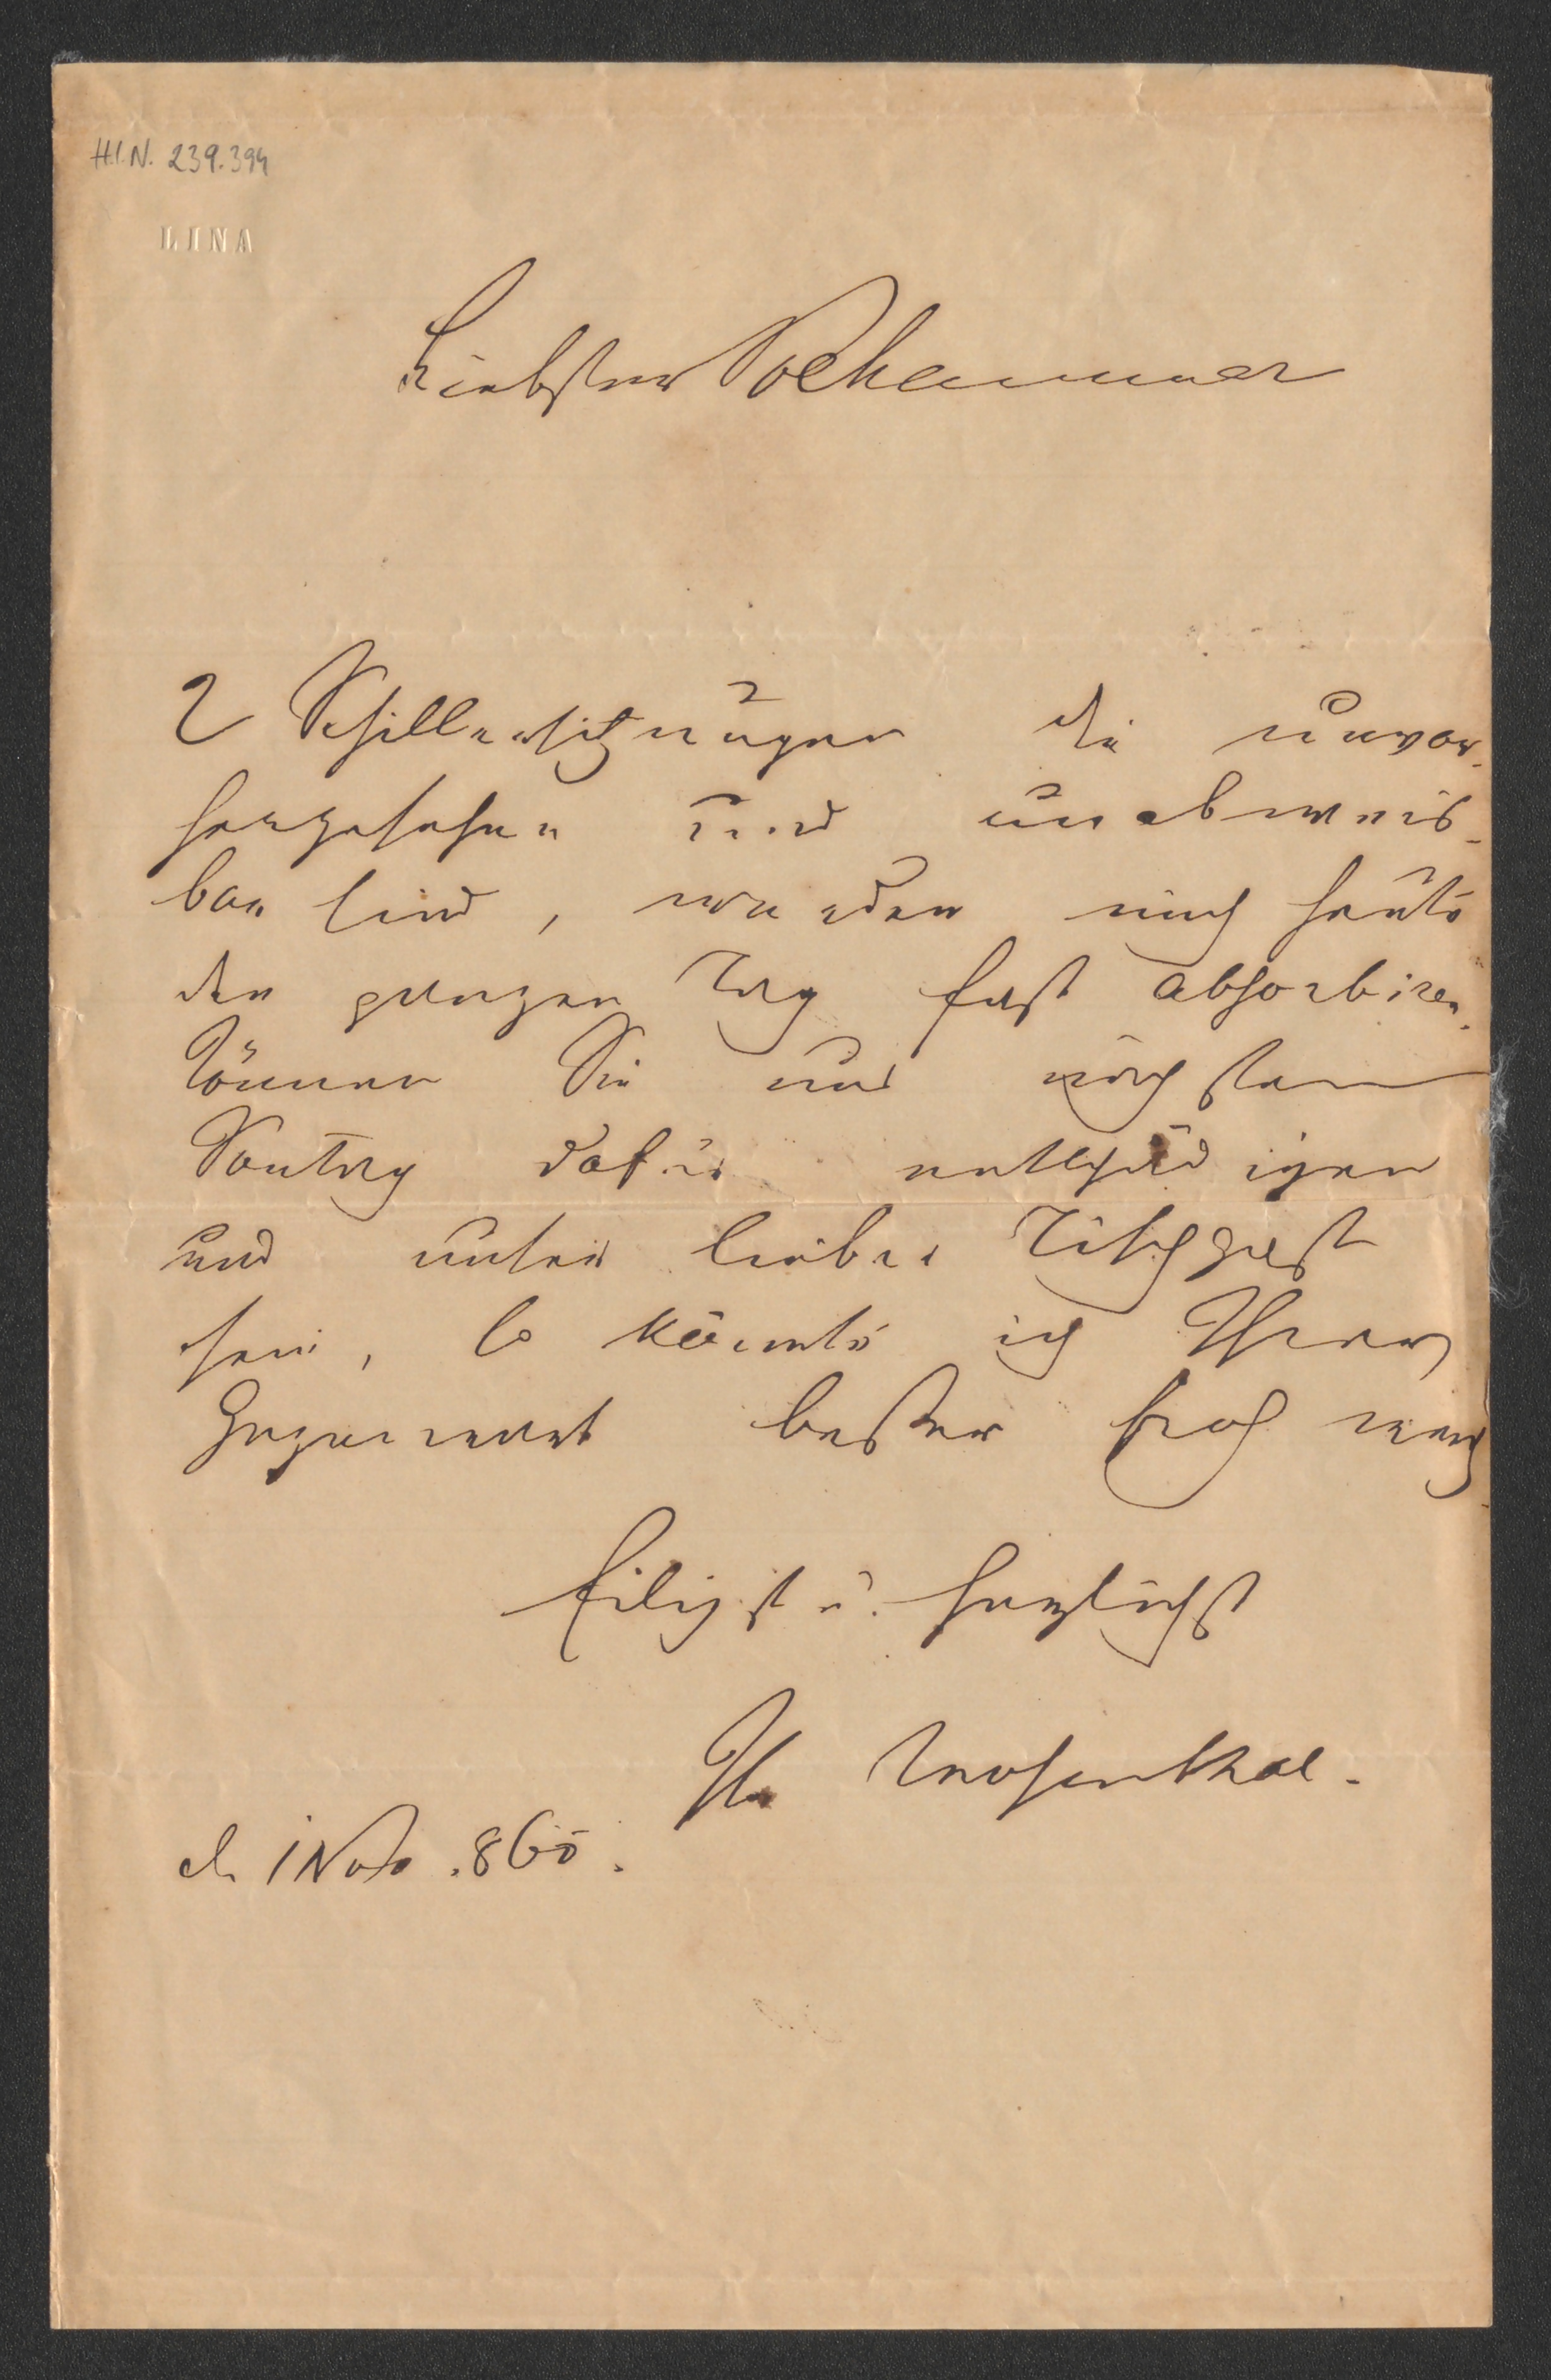 H.I.N. 239.394
LINA
Liebster
2 Schillersitzungen die unvor-
hergesehen und unabweis-
bar sind, werden mich heute
den ganzen Tag fast absorbiren.
Können Sie uns nächsten
Sontag dafür entschädigen
und unser lieber Tischgast
sein, so könnte ich Ihrer
Gegenwart bester froh werd
Eiligst u. herzlichst
Ihr Mosenthal.
d. 1 Nov .860.